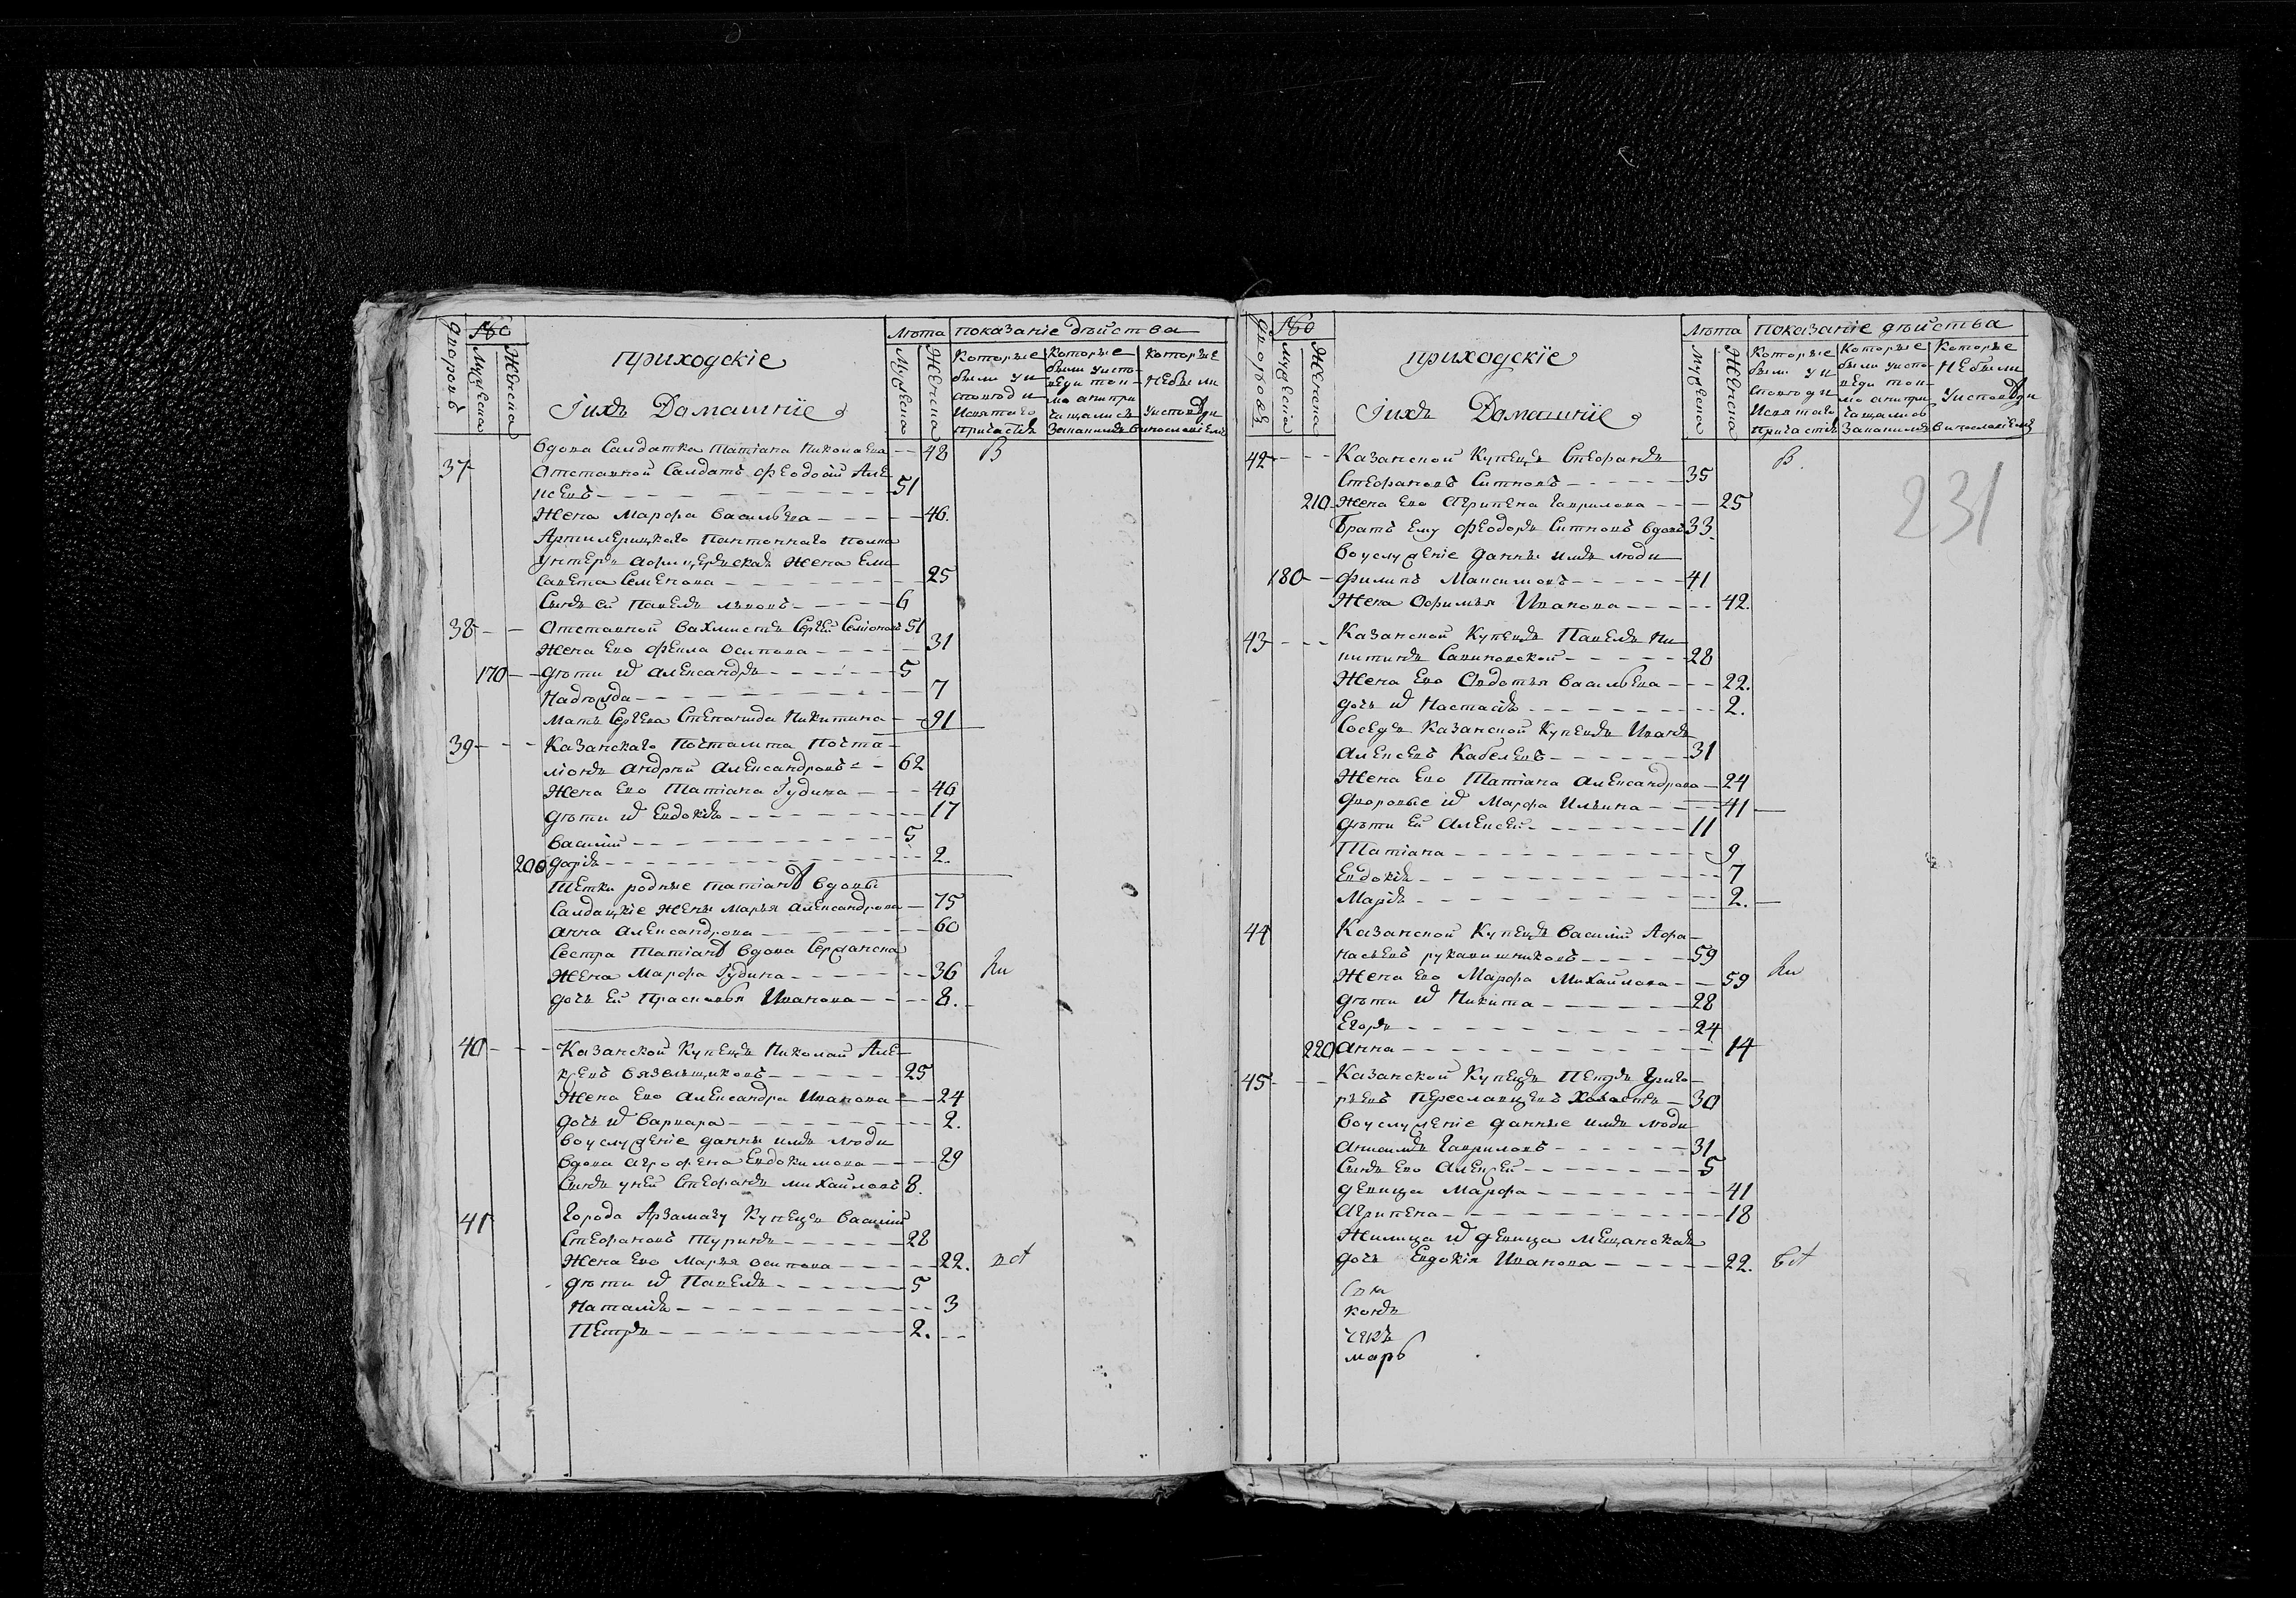 дворовъ № Мужеска Женска приходскіе Іихъ Домашніе Лѣта Мужеска Женска показаніе дѣйства
которые были уисповеди исвятаго причастія
которые были уисповеди токмо анипричащались
которые небыли уисповеди
вдова Салдатка Татіана Николаева 48 В
37 Отставной Салдатъ Феодоръ Але
ксеевъ 51
Жена Марфа Васильева 46.
Артилерицкаго понтоннаго полка
унтеръ афицерская Жена Ели
савета Семенова 25
Сынъ ей Павелъ львовъ 6
38 Отставной Вахмистръ Сергѣй Семіоновъ 51
Жена ево Фекла Осипова 31
170 дѣти им Александръ 5
Надежда 7
Мать Сергѣева Степанида Никитина 91
39 Казанскаго Почтамта Почта
ліонъ андрѣй Александровъ 62
Жена Ево Татіана Гудина 46
дѣти им Евдокія 17
василій 5
200 дарія 2.
Тетки родные татіанѣ вдовы
Салдацкіе жены Марья Александрова 75
анна александрова 60
Сестра татіанѣ вдова Сержанска
Жена Марфа Гудина 36
дочь ей Прасковья Иванова 8.
40 Казанской Купецъ Николай Але
ксеевъ Вязельщиковъ 25
Жена Ево Александра Иванова 24
дочь им Варвара 2.
воуслуженіе данны имъ люди
вдова агрофена Евдокимова 29
Сынъ уней Стефанъ михайловъ 8.
41 Города Арзамазу Купецъ василій
Стефановъ Туринъ 28
Жена ево Марья осипова 22.
дѣти им Павелъ 5
Наталія 3
Петръ 2.
дворовъ № Мужеска Женска приходскіе Іихъ Домашніе Лѣта Мужеска Женска показаніе дѣйства
которые были уисповеди исвятаго причастія
которые были уисповеди токмо анипричащались
Которые небыли уисповеди
231
42 Казанской Купецъ Стефанъ В.
Стефановъ Ситновъ 35
210 Жена ево агрипена гаврилова 25
братъ ему Феодоръ Ситновъ вдовъ 33.
воуслуженіе данны имъ люди
180 филипъ Максимовъ 41
Жена Офимья Иванова 42.
43 Казанской Купецъ Павелъ Ни
китинъ Савиновской 28
Жена Ево Авдотья васильева 22.
дочь им Настасія 2.
Соседъ Казанской Купецъ Иванъ
алексеевъ Кабелевъ 31
Жена Ево Татіана александрова 24
дворовые им Марфа Ильина 41
дѣти ей алексей 11
Татіана 9
Евдокія 7
Марія 2.
44 Казанской Купецъ василій Афа
насьевъ рукавишниковъ 59
Жена ево Марфа Михайлова 59
дѣти им Никита 28
Егоръ 24
220 анна 14
45 Казанской Купецъ Петръ Григо
рьевъ Переславцевъ Холостъ 30
воуслуженіе данные имъ люди
анисимъ гавриловъ 31
Сынъ ево алексей 5
девица Марфа 41
агрипена 18
Жилица им девица мещанская
дочь Евдокія Иванова 22.